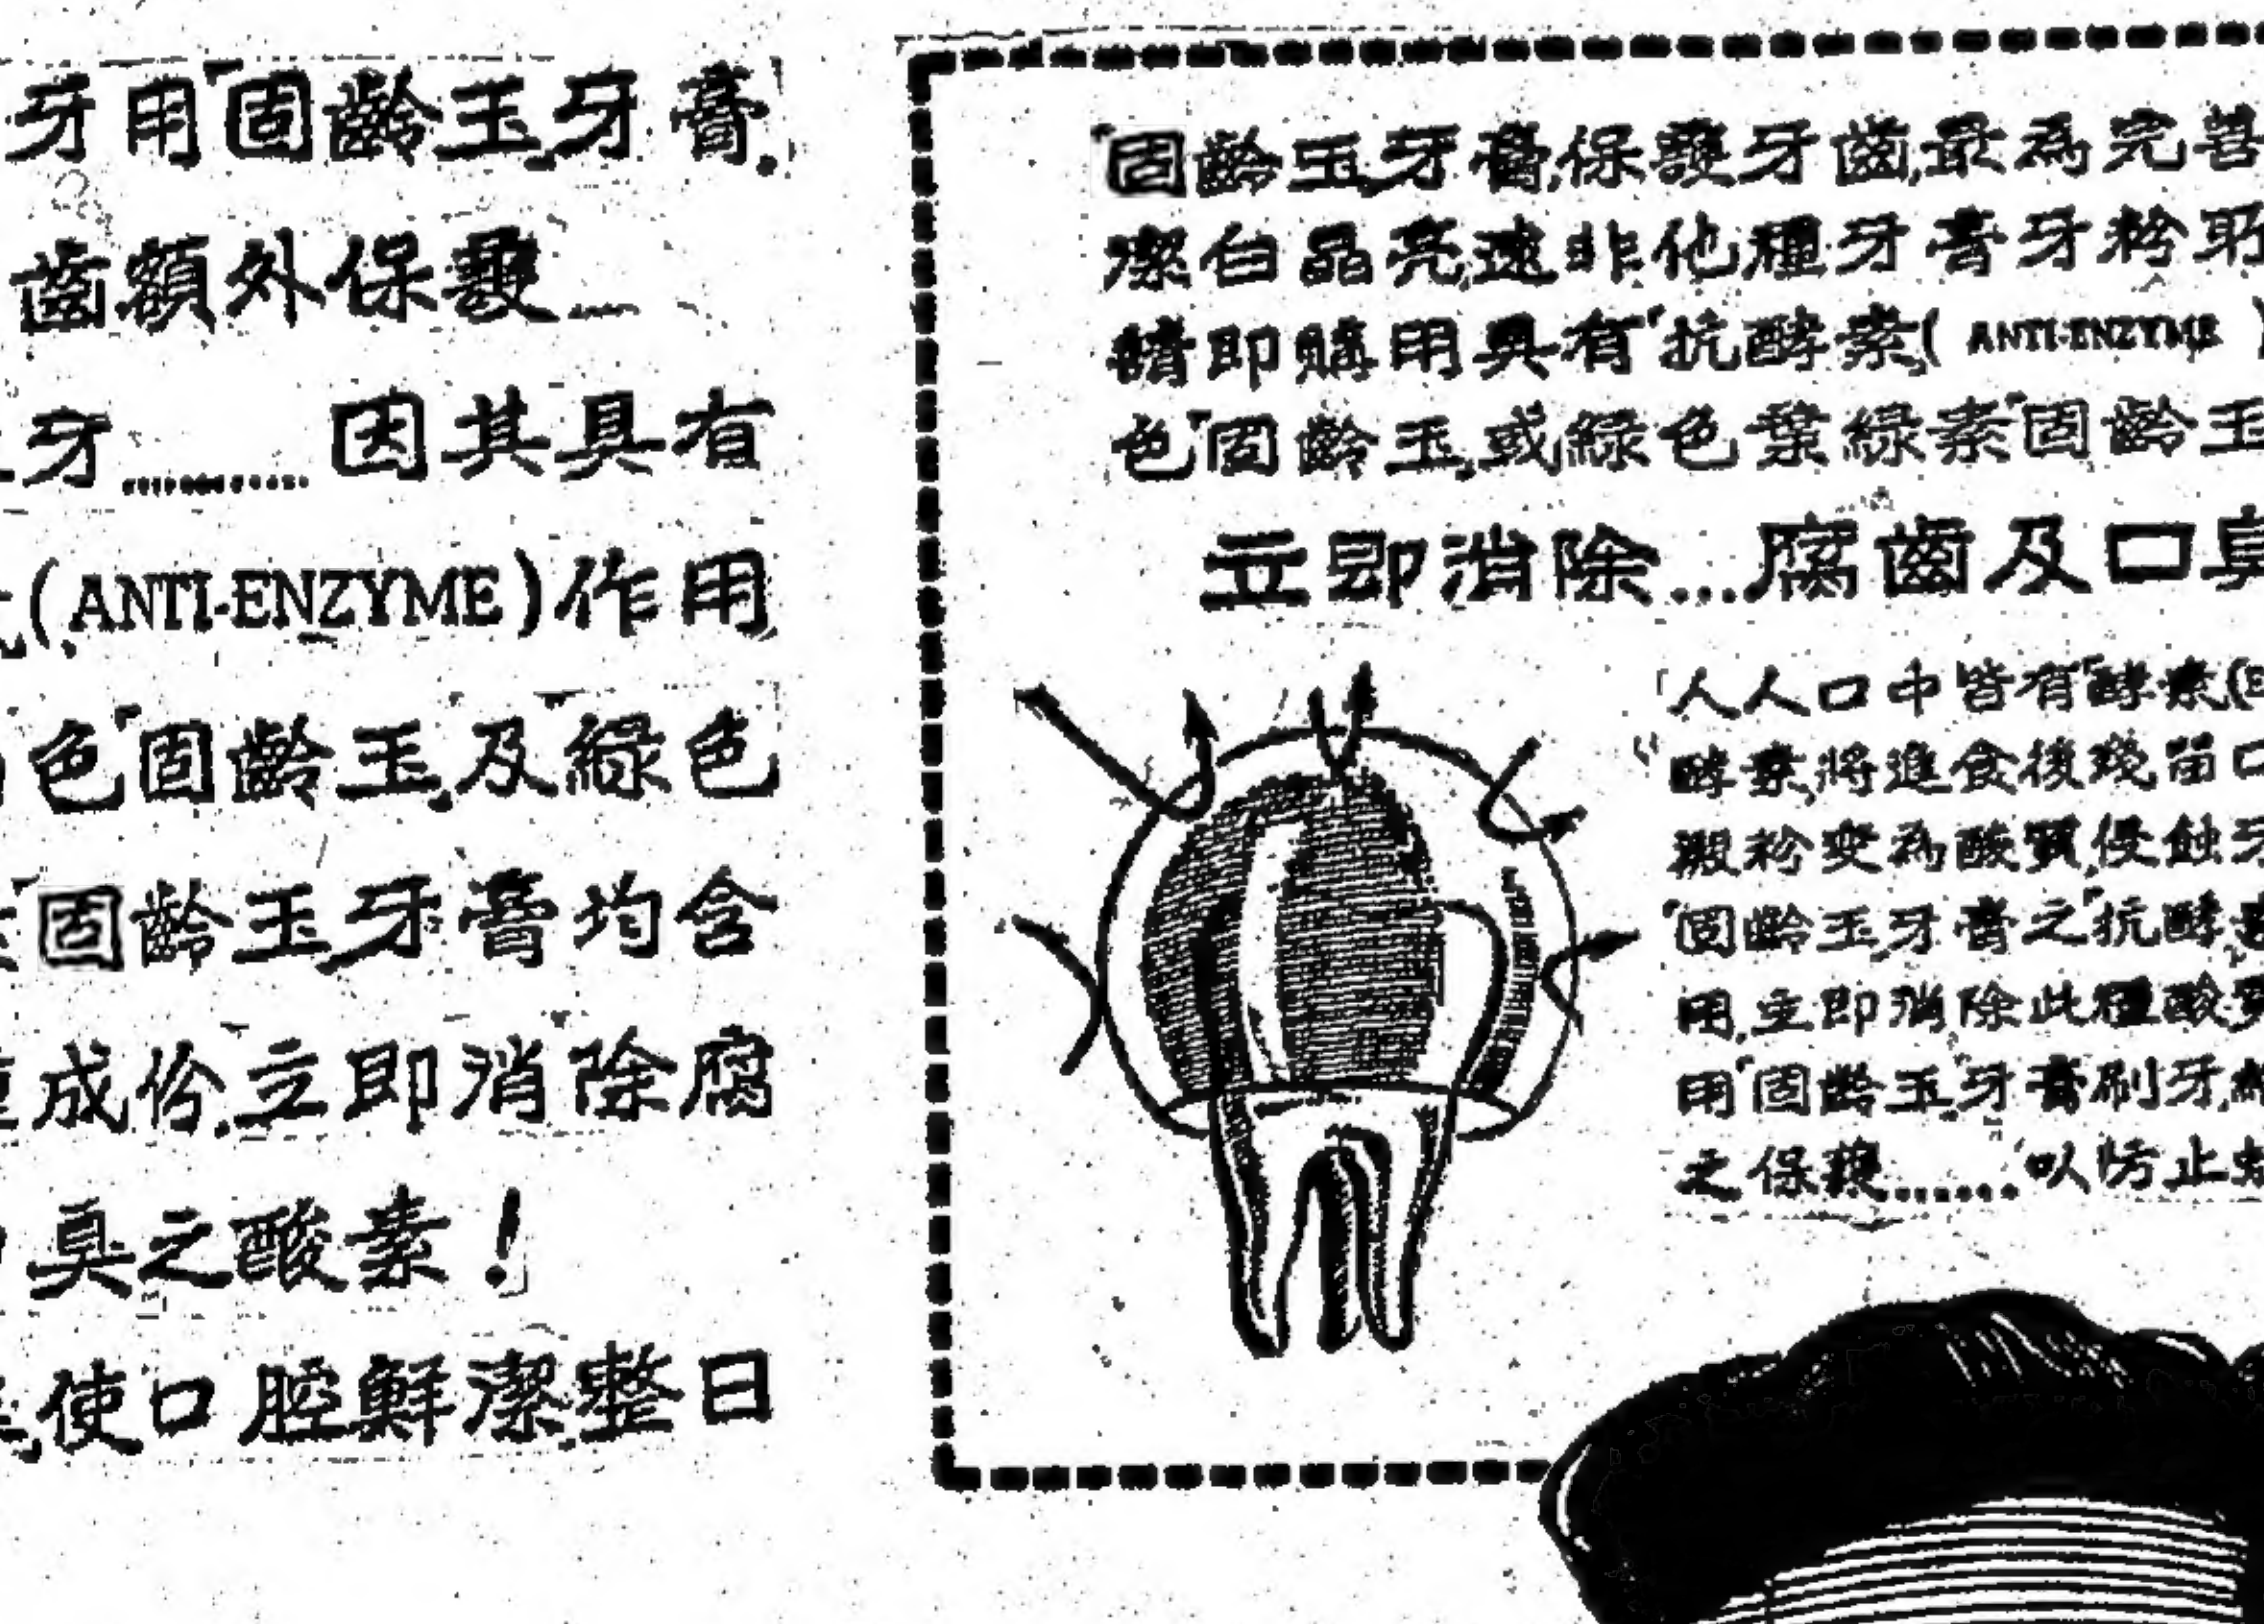 牙用「固齡玉」牙膏.
齒額外保護……
牙………因其具有
(ANTI-ENZYME)作用
色「固齡玉」及綠色
「固齡玉」牙膏均含
成份,立即消除腐
臭之酸素!
使口腔鮮潔整日
「固齡玉」牙膏,保護牙齒,最為完善
潔白晶亮,遠非他種牙膏牙粉所
請即購用具有「抗酵素」(ANTI-ENZYME)
色「固齡玉」或綠色葉綠素「固齡玉
立即消除…腐齒及口臭
人人口中皆有「酵素」(
酵素,將進食後殘留口
澱粉變為酸質,侵蝕牙
「固齡玉」牙膏之「抗酵素
用,立即消除此種酸質
用「固齡玉」牙膏刷牙,
之保護……以防止